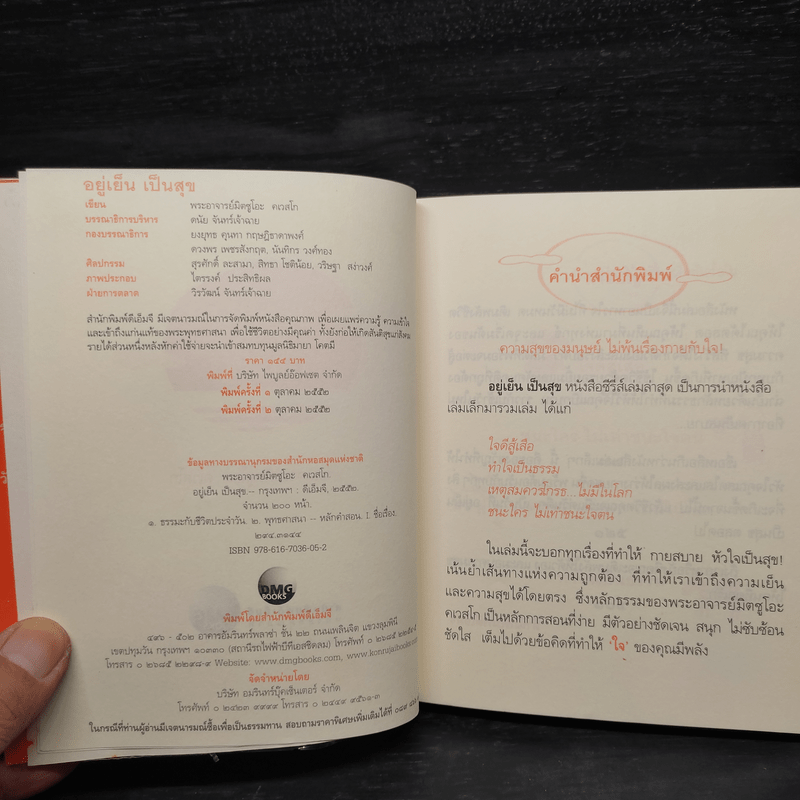 อยู่เย็น เป็นสุข
เขียน พระอาจารย์มิตซูโอะ คเวสโก
บรรณาธิการบริหาร ดนัย จันทร์เจ้าฉาย
กองบรรณาธิการ ยงยุทธ คุนทา กฤษฎิธาดาพงศ์
ดวงพร เพชรสังกฤต, นันทิกร วงค์ทอง
ศิลปกรรม สุรศักดิ์ ละสามา, สิทธา โชติน้อย, วริษฐา สง่าวงศ์
ภาพประกอบ ไตรรงค์ ประสิทธิผล
ฝ่ายการตลาด วิรวัฒน์ จันทร์เจ้าฉาย
สำนักพิมพ์ดีเอ็มจี มีเจตนารมณ์ในการจัดพิมพ์หนังสือคุณภาพ เพื่อเผยแพร่ความรู้ ความเข้าใจ
และเข้าถึงแก่นแท้ของพระพุทธศาสนา เพื่อใช้ชีวิตอย่างมีคุณค่า ทั้งยังก่อให้เกิดสันติสุขแก่สังคม
รายได้ส่วนหนึ่งหลังหักค่าใช้จ่ายจะนำเข้าสมทบทุนมูลนิธิมายา โคตมี
ราคา ๑๔๔ บาท
พิมพ์ที่ บริษัท ไพบูลย์อ๊อฟเซต จำกัด
พิมพ์ครั้งที่ ๑ ตุลาคม ๒๕๕๒
พิมพ์ครั้งที่ ๒ ตุลาคม ๒๕๕๒
ข้อมูลทางบรรณานุกรมของสำนักหอสมุดแห่งชาติ
พระอาจารย์มิตซูโอะ คเวสโก.
อยู่เย็น เป็นสุข.-- กรุงเทพฯ : ดีเอ็มจี, ๒๕๕๒.
จำนวน ๒๐๐ หน้า.
๑. ธรรมะกับชีวิตประจำวัน. ๒. พุทธศาสนา -- หลักคำสอน. I ชื่อเรื่อง.
๒๙๔.๓๑๔๔
ISBN 978-616-7036-05-2
DMG
BOOKS
พิมพ์โดยสำนักพิมพ์ดีเอ็มจี
๔๙๖ - ๕๐๒ อาคารอัมรินทร์พลาซ่า ชั้น ๒๒ ถนนเพลินจิต แขวงลุมพินี
เขตปทุมวัน กรุงเทพฯ ๑๐๓๓๐ (สถานีรถไฟฟ้าบีทีเอสชิดลม) โทรศัพท์ ๐ ๒๖๘๕
โทรสาร ๐ ๒๖๘๕ ๒๒๙๘-๙ Website: www.dmgbooks.com,
จัดจำหน่ายโดย
บริษัท อมรินทร์บุ๊คเซ็นเตอร์ จำกัด
โทรศัพท์ ๐ ๒๔๒๓ ๙๙๙๙ โทรสาร ๐ ๒๔๔๙ ๙๕๐๑-๓
ในกรณีที่ท่านผู้อ่านมีเจตนารมณ์ซื้อเพื่อเป็นธรรมทาน สอบถามราคาพิเศษเพิ่มเติมได้ที่
คำนำสำนักพิมพ์
ความสุขของมนุษย์ ไม่พ้นเรื่องกายกับใจ!
อยู่เย็น เป็นสุข หนังสือซีรี่ส์เล่มล่าสุด เป็นการนำหนังสือ
เล่มเล็กมารวมเล่ม ได้แก่
ใจดีสู้เสือ
ทำใจเป็นธรรม
เหตุสมควรโกรธ...ไม่มีในโลก
ชนะใคร ไม่เท่าชนะใจตน
ในเล่มนี้จะบอกทุกเรื่องที่ทำให้ กายสบาย หัวใจเป็นสุข!
เน้นย้ำเส้นทางแห่งความถูกต้อง ที่ทำให้เราเข้าถึงความเย็น
และความสุขได้โดยตรง ซึ่งหลักธรรมของพระอาจารย์มิตซูโอะ
คเวสโก เป็นหลักการสอนที่ง่าย มีตัวอย่างชัดเจน สนุก ไม่ซับซ้อน
ชัดใส เต็มไปด้วยข้อคิดที่ทำให้ 'ใจ' ของคุณมีพลัง